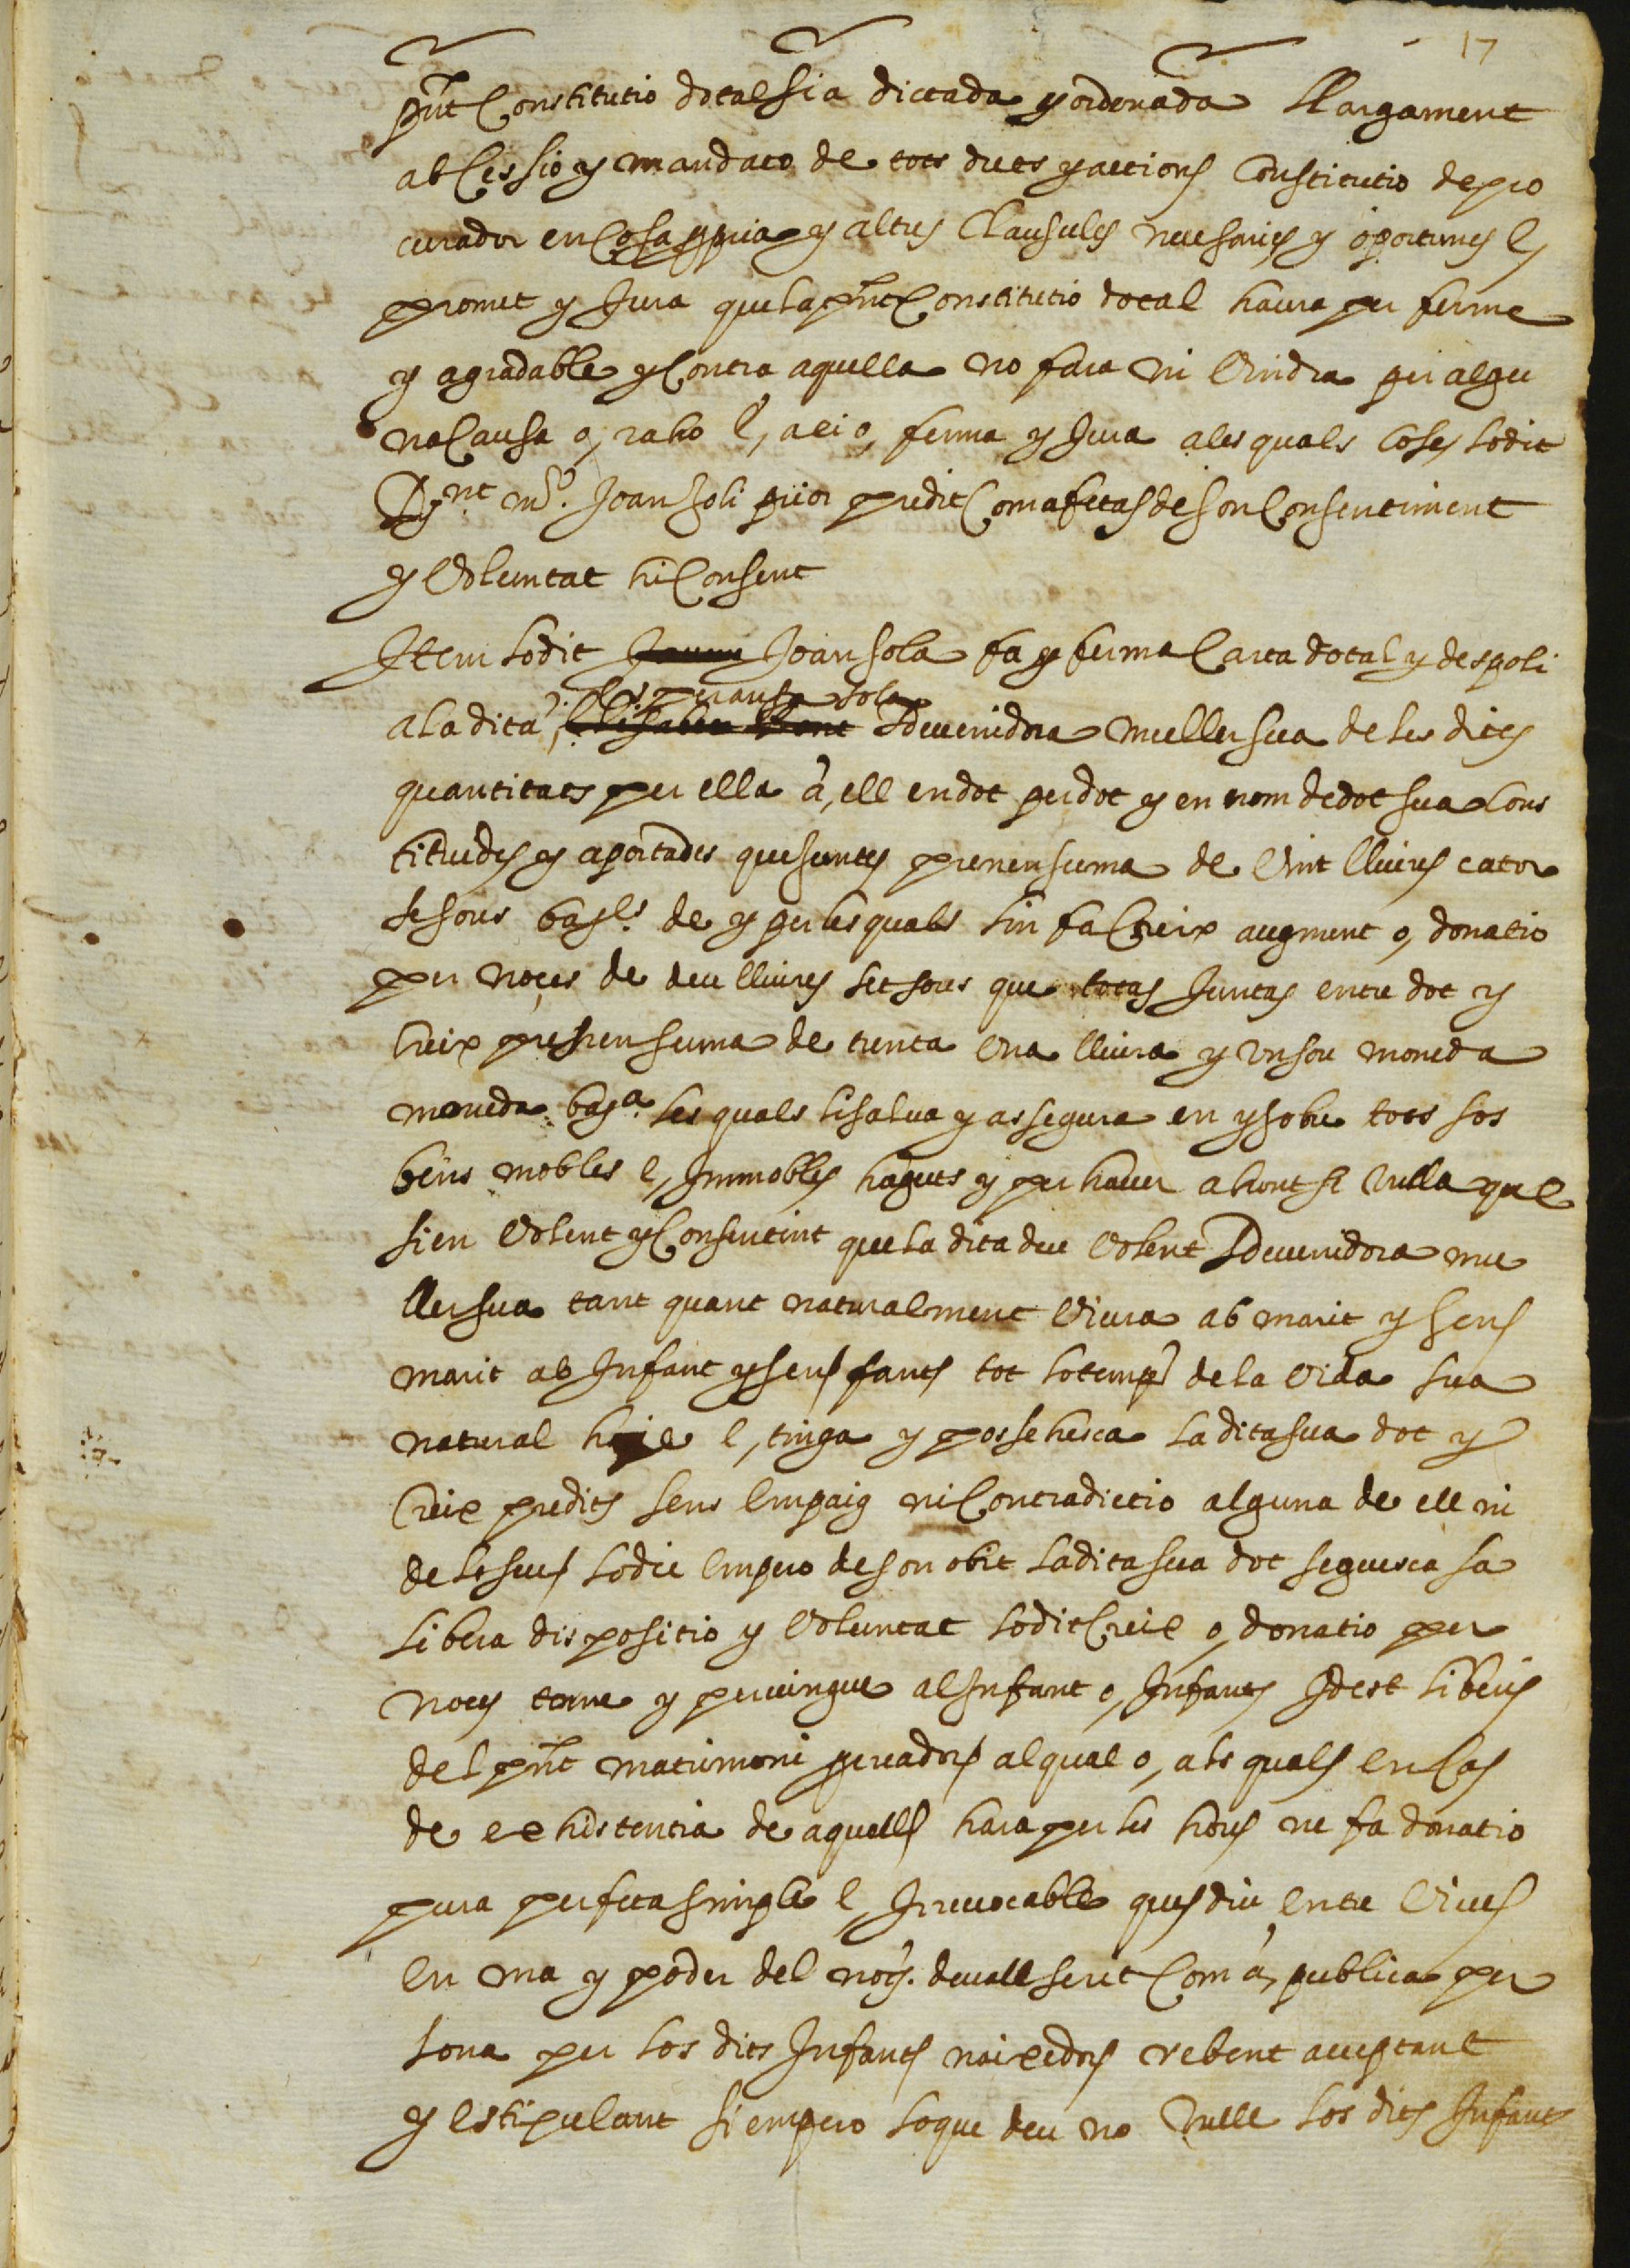 17
pnt Constitutio dotal sia dictada y ordenada llargament
ab Cessio y mandato de tots drets y actions Constitutio de pro
curador en Cosa ppria y altres Clausules necesaries y oportunes E,
promet y Jura que la pnt Constitutio dotal haura per ferme
y agradable y Contra aquella no fara ni Vindra per algu
na Causa o, raho E, axi o, ferma y Jura a les quals Coses lo dit
mº. Joan soli prior predit Com a fetas de son Consentiment
y Voluntat hi Consent
Item lo dit Joan sola fa y ferma Carta dotal y despoli
speransa sola
a la dita, Elisabeu sdevenidora muller sua de les dites
quantitats per ella à, ell en dot per dot y en nom de dot sua Cons
titudes y aportades que juntes prenen suma de Vint lliures cator
se sous bayls. de y per les quals lin fa Creix augment o, donatio
per noçes de deu lliures set sous que totas Juntas entre dot y
Creix prenen suma de trenta Una lliura y Un sou moneda
moneda baya. les quals li salva y assegura en y sobre tots sos
bens mobles E, Immobles haguts y per haver a hont se vulla que
sien Volent y Consentint que la dita deu Volent sdevenidora mu
ller sua tant quant naturalment Viura ab marit y sens
marit ab Infant y sens fants tot lo temps de la Vida sua
natural haje E, tinga y possehesca la dita sua dot y
Creix predits sens Empaig ni Contradictio alguna de ell ni
de los seus lo die Empero de son obit la dita sua dot seguesca sa
libera dispositio y Voluntat lo dit Creix o, donatio per
noces torne y pervingue al Infant o, Infants Idest liberis
del pnt matrimoni procreadors al qual o, als quals En Cas
de exhistencia de aquells hara per les hores ne fa donatio
pura perfeta simple E, Irrevocable ques diu Entre Vius
En ma y poder del noy. devall scrit Com à, publica per
sona per los dits Infants naixedors rebent acceptant
y Estipulant si empero lo que deu no Vulle los dits Infants